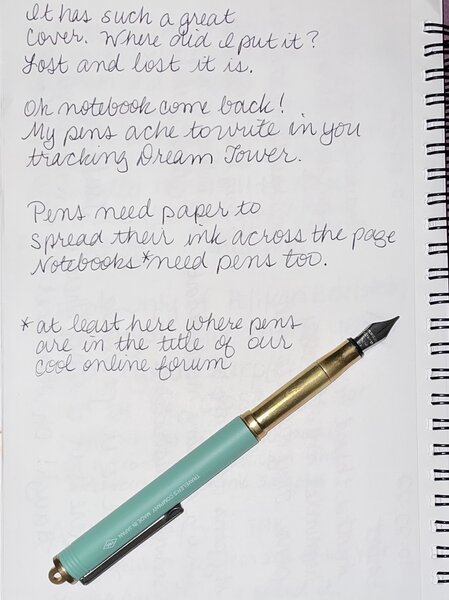 It has such a great
cover. Where did I put it?
Lost and lost it is.
Oh notebook come back!
My pens ache to write in you
tracking Dream Tower.
Pens need paper to
spread their ink across the page
Notebooks *need pens too.
*at least here where pens
are in the title of our
cool online forum
TRAVELER'S COMPANY MADE IN JAPAN